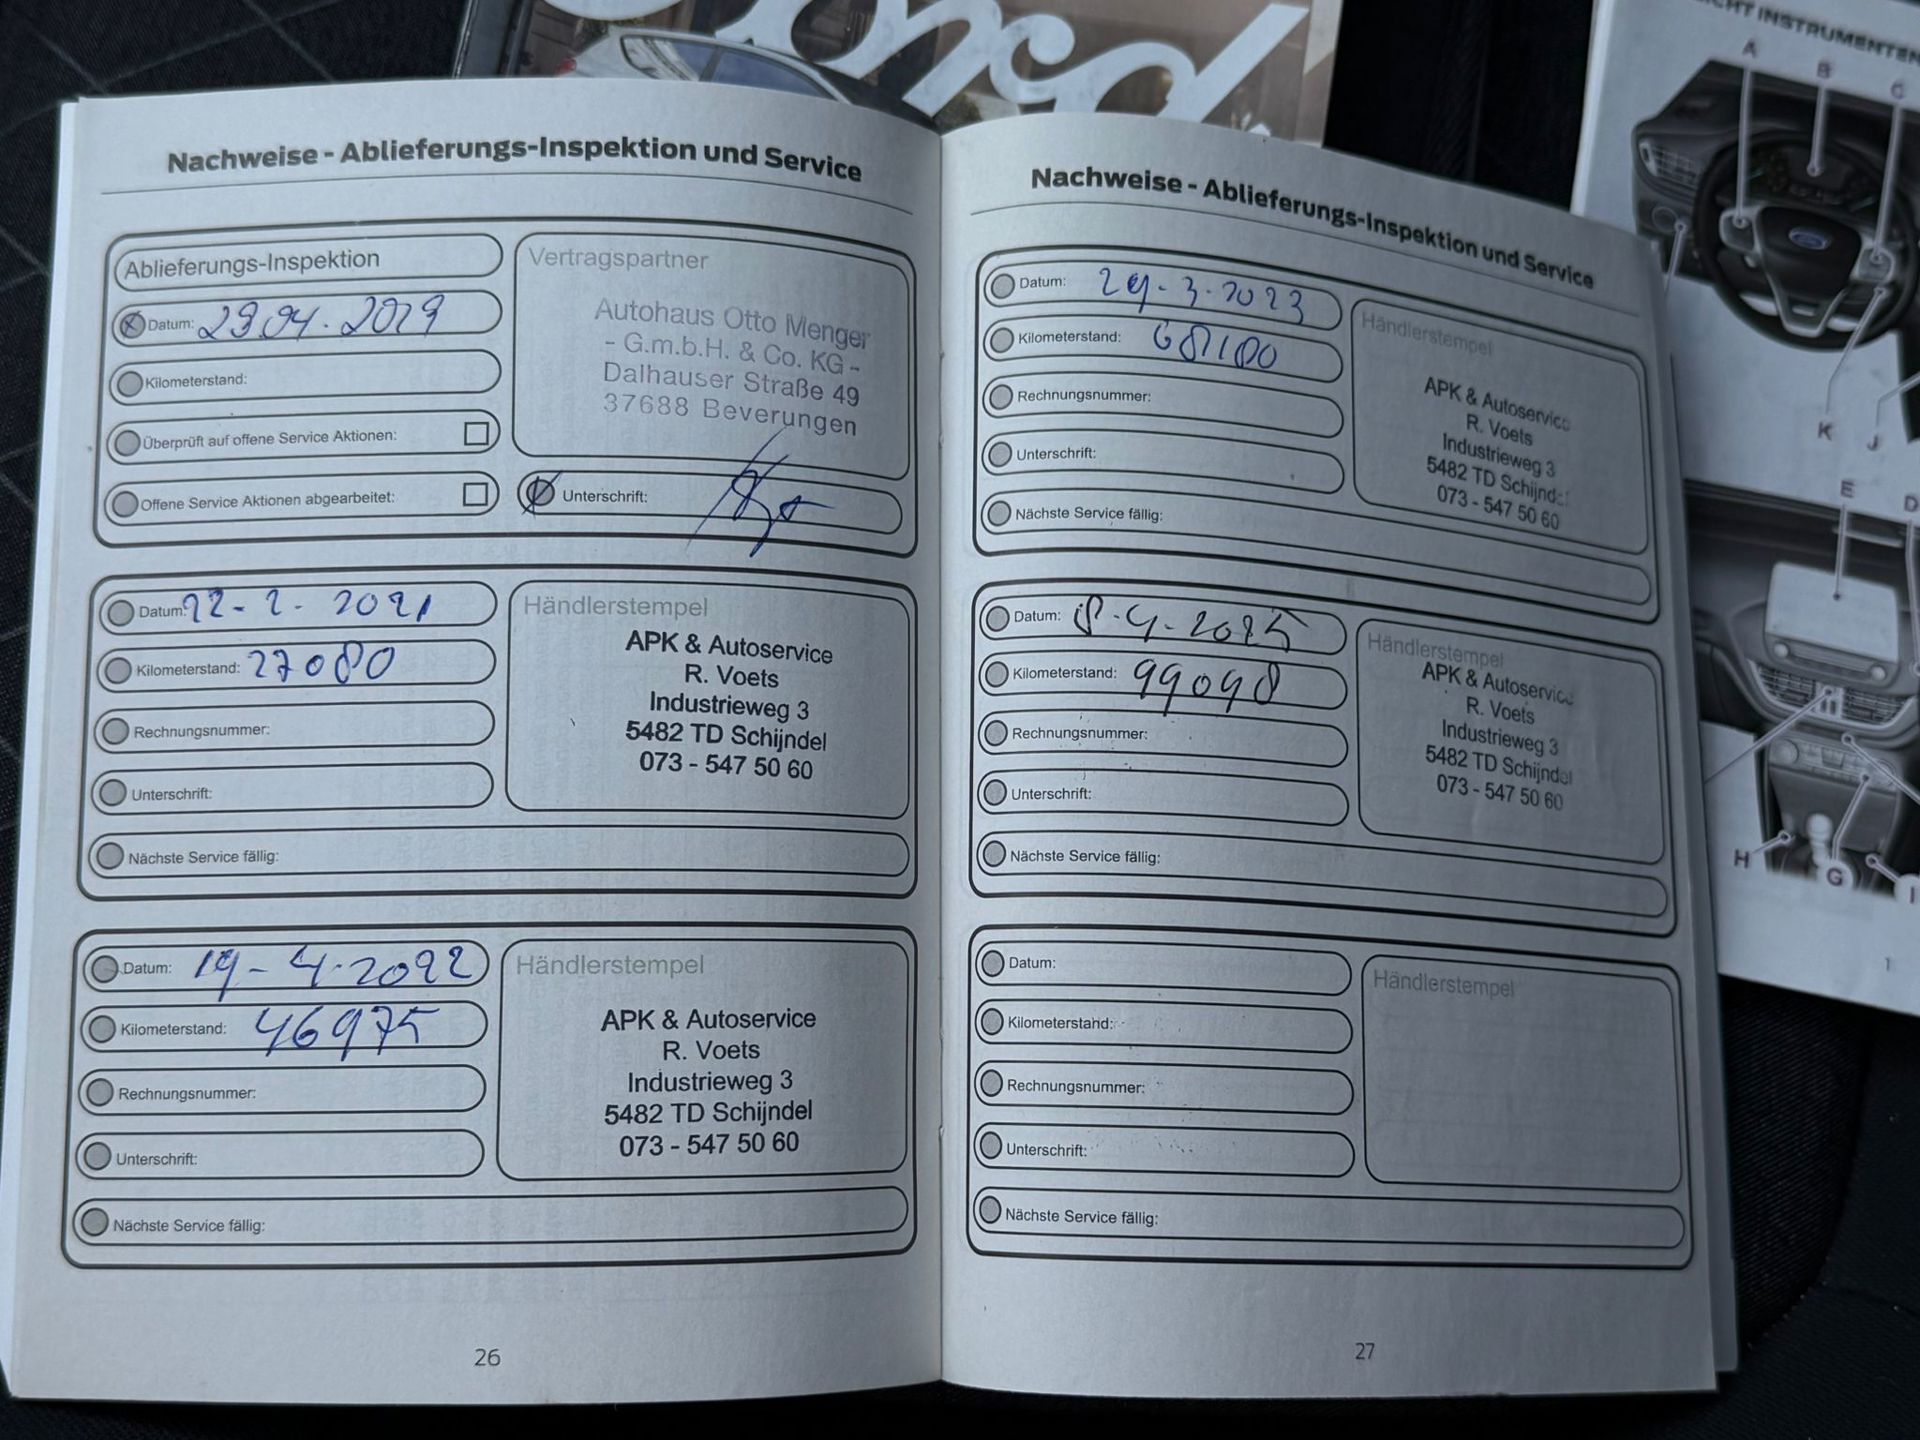 Ford
Nachweise - Ablieferungs-Inspektion und Service
Ablieferungs-Inspektion
Datum: 29.04.2019
Kilometerstand:
Überprüft auf offene Service Aktionen:
Offene Service Aktionen abgearbeitet:
Vertragspartner
Autohaus Otto Menger
- G.m.b.H. & Co. KG -
Dalhauser Straße 49
37688 Beverungen
Unterschrift:
Datum: 22-2-2021
Kilometerstand: 27080
Rechnungsnummer:
Unterschrift:
Nächste Service fällig:
Händlerstempel
APK & Autoservice
R. Voets
Industrieweg 3
5482 TD Schijndel
073 - 547 50 60
Datum: 19-4-2022
Kilometerstand: 46975
Rechnungsnummer:
Unterschrift:
Nächste Service fällig:
Händlerstempel
APK & Autoservice
R. Voets
Industrieweg 3
5482 TD Schijndel
073 - 547 50 60
26
Nachweise - Ablieferungs-Inspektion und Service
Datum: 29-3-2023
Kilometerstand: 68180
Rechnungsnummer:
Unterschrift:
Nächste Service fällig:
Händlerstempel
APK & Autoservice
R. Voets
Industrieweg 3
5482 TD Schijndel
073 - 547 50 60
Datum: 8-4-2025
Kilometerstand: 99098
Rechnungsnummer:
Unterschrift:
Nächste Service fällig:
Händlerstempel
APK & Autoservice
R. Voets
Industrieweg 3
5482 TD Schijndel
073 - 547 50 60
Datum:
Kilometerstand:
Rechnungsnummer:
Unterschrift:
Nächste Service fällig:
Händlerstempel
27
INSTRUMENTEN
A
B
C
K
J
E
D
H
G
I
1